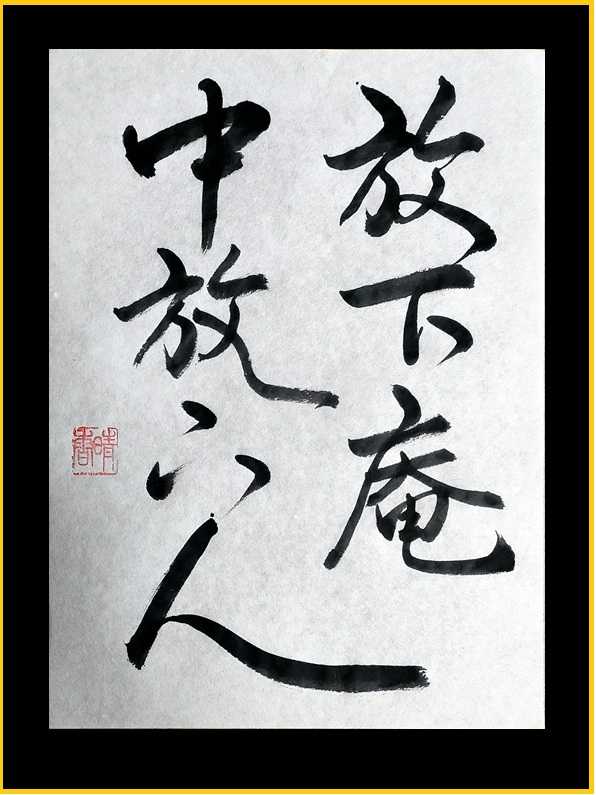 放下庵
中放下人
晴香